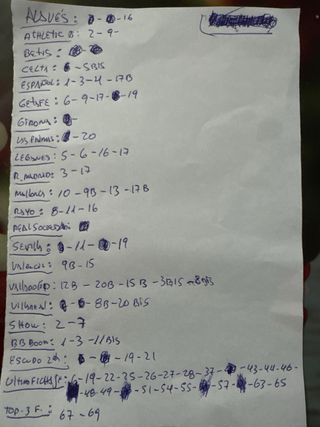 ALAVÉS: - - 16
ATHLETIC B: 2 - 9 -
BETIS:
CELTA: - 5BIS
ESPAÑOL: 1 - 3 - 4 - 17B
GETAFE: 6 - 9 - 17 - - 19
GIRONA: -
LAS PALMAS: - 20
LEGANES: 5 - 6 - 16 - 17
R. MADRID: 3 - 17
MALLORCA: 10 - 9B - 13 - 17B
RAYO: 8 - 11 - 16
REAL SOCIEDAD:
SEVILLA: - 11 - - 19
VALENCIA: 9B - 15
VALLADOLID: 12B - 20B - 15B - 3BIS - 8BIS
VILLAREAL: - - 8B - 20 BIS
SHOW: 2 - 7
BB BOOM: 1 - 3 - 11BIS
ESCUDO 2ª: - - 19 - 21
ULTIMA FICHAS: 6 - 19 - 22 - 25 - 26 - 27 - 28 - 37 - - 43 - 44 - 46 -
- 48 - 49 - - 51 - 54 - 55 - - 57 - - 63 - 65
TOP-3 F: 67 - 69